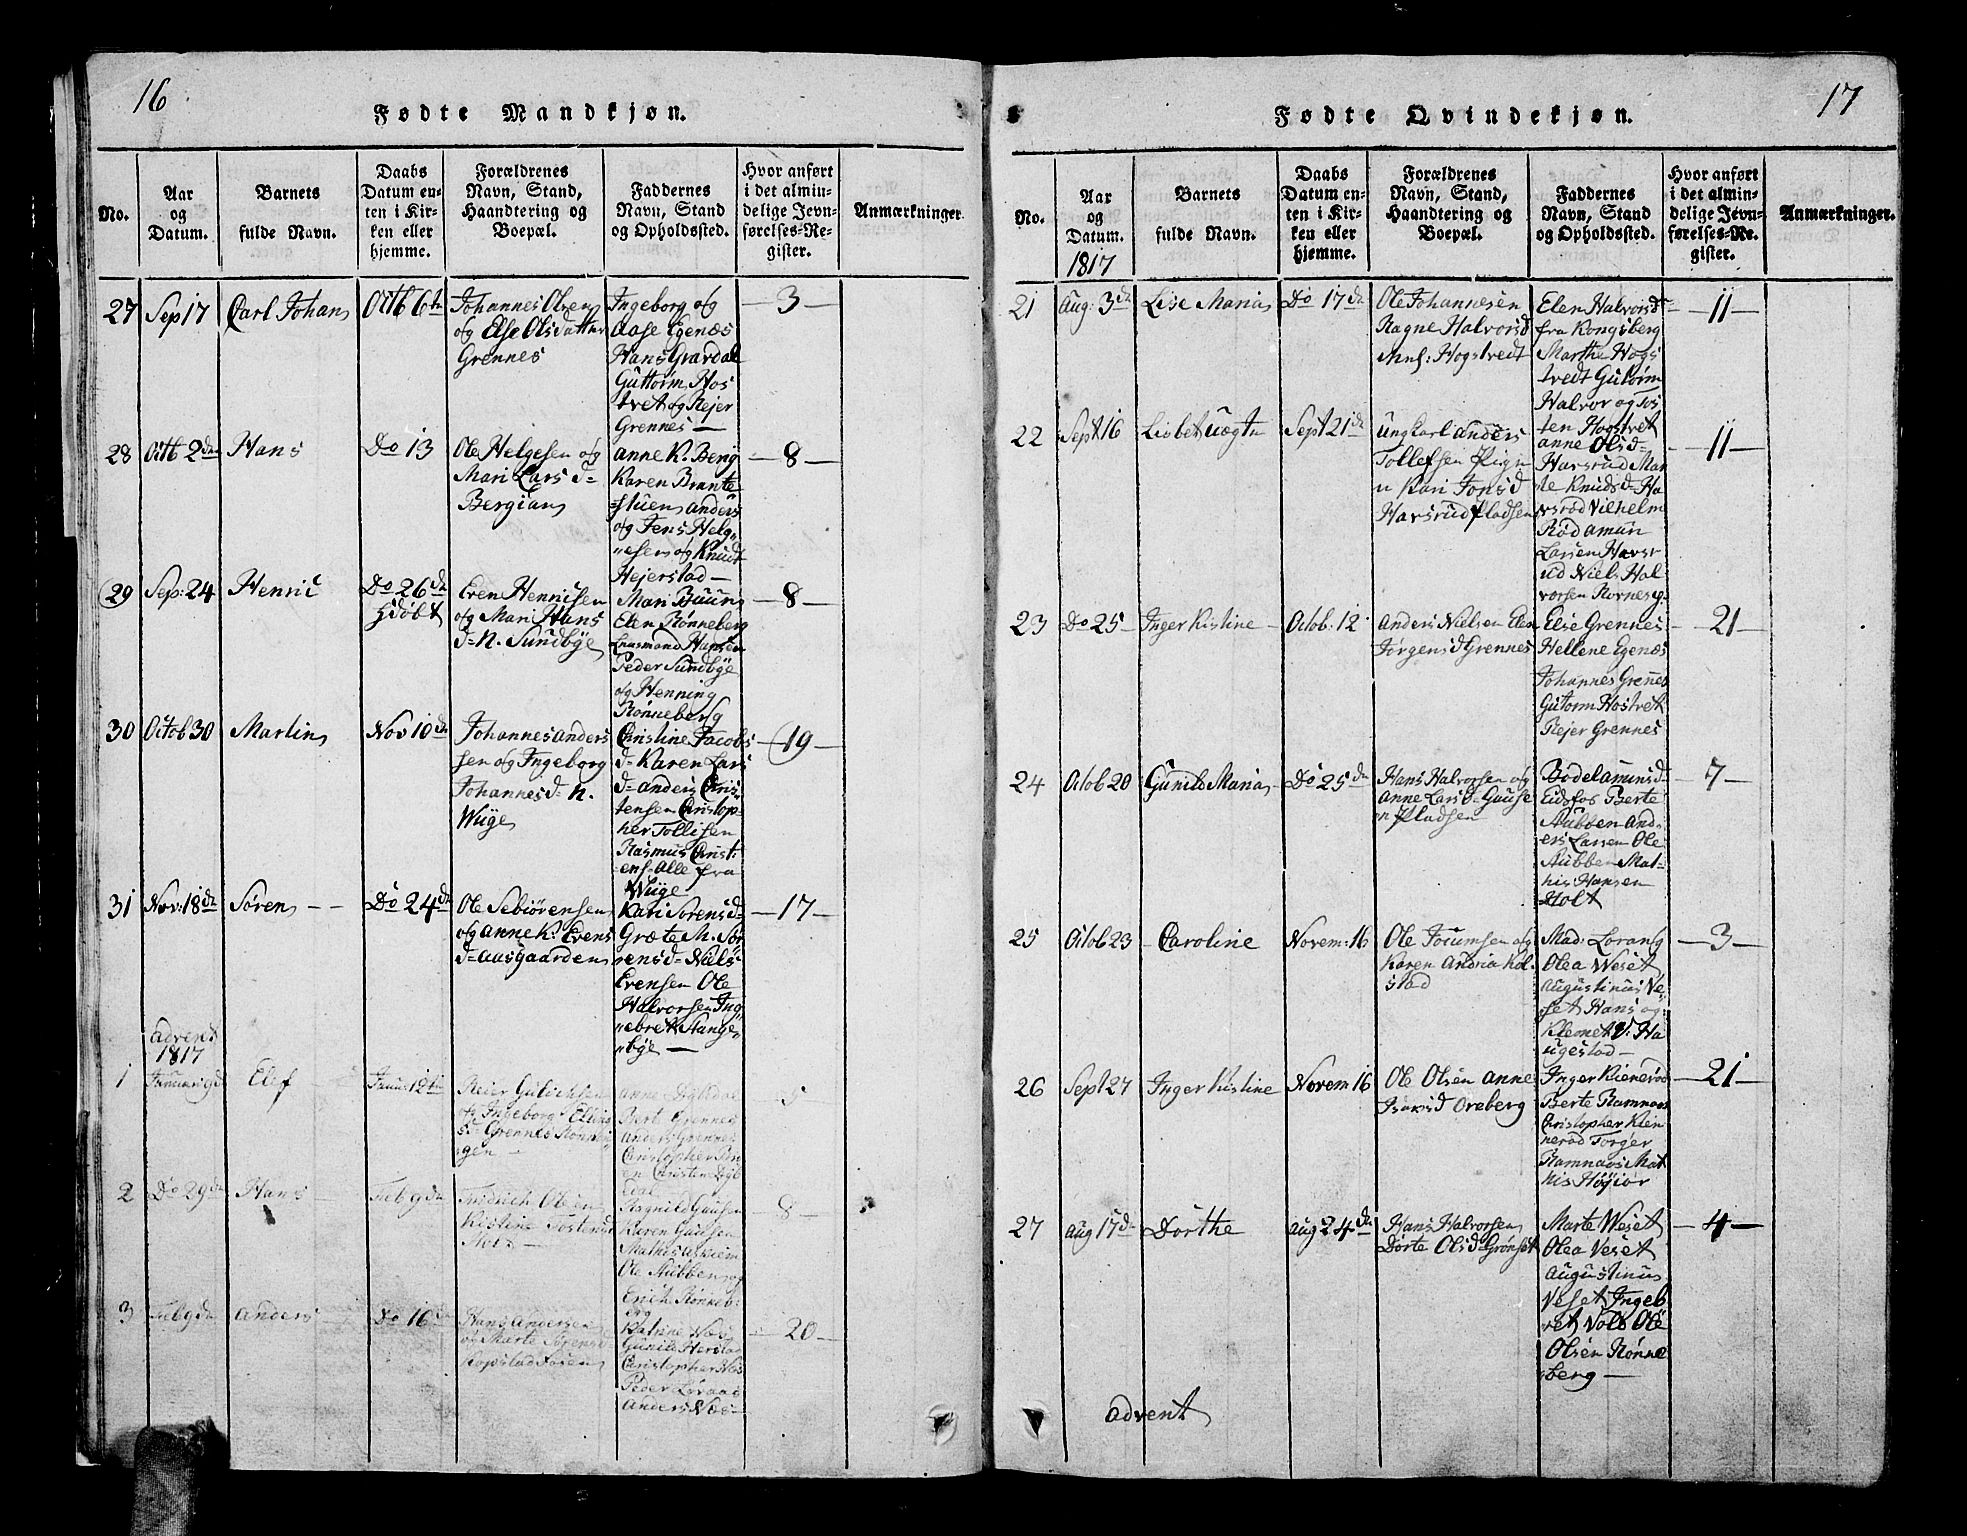 16
Fødte Mandkjøn.
No.
Aar
og
Datum.
Barnets
fulde Navn.
Daabs
Datum en-
ten i Kir-
ken eller
hjemme.
Forældrenes
Navn, Stand,
Haandtering og
Boepæl.
Faddernes
Navn, Stand
og Opholdssted.
Hvor anført
i det almin-
delige Jevn-
førelses-Re-
gister.
Anmærkninger
27
Sep 17
Carl Johan
Octb 6te
Johannes Olsen
og Else Olsdatter
Grennes
Ingeborg og
Aase Egenæs
Hans Grardal
Guttorm Hos
tvet og Rejer
Grennes —
— 3 —
28
Octb 2da
Hans
Do 13
Ole Helgesen og
Mari Lars d=
Bergian
anne K. Berg
Karen Brante
=stuen anders
og Jens Helg„
„esen og Knudt
Hejerstad —
— 8 —
29
Sep: 24
Henric
Do 26da
Even Henrisen
og Mari Hans
d= N. Sundbye
Mari Buun
Elen Rønneberg
Hansen
Peder Sundbye
og Henning
Rønneberg
— 8 —
30
Octob 30
Martin
Nov 10da
Johannes anders
sen og Ingeborg
Johannes d= N.
Wiige
Christine Jacobs
d= Karen Lars
d= anders Chris
tensen Christop
her Tollisen
Rasmus Christ:
ens= alle fra
Wiige
— 19 —
31
Nov: 18da
Søren
Do 24da
Ole Sebiørensen
og anne K: Evens
d= aasgaarden
Kari Sorensd=
Græte M. Sør
rensd= Niels
Evensen Ole
Halvorsen Ing
„ebret Stange
„bye —
— 17 —
advent
1817
1
Januari 9d
Elef
Reier Gulichsen
og Ingeborg Elling
sd= Grennes Rønnin
gen —
anne Dybdal
Bert Grennes
anders Grennes
Christopher
en Christen Dyb
dal
5
2
Do 29da
Hans
Feb 9da
Fridrich Olsen
Kistine Tostensd
Ragnild Gausen
Karen Gausen
Mathis askiem
Ole Stubben og
Erich Rønneb:
erg
— 8 —
3
Feb 9da
anders
Do 16da
Hans Andersen
og Marte Sørensd
Kopstad
Katrine Næs
Gunild Herstad
Christopher Næs
Peder
anders Næs
— 20 —
17
Fødte Qvindekjøn.
No.
Aar
og
Datum.
1817
Barnets
fulde Navn.
Daabs
Datum en-
ten i Kir-
ken eller
hjemme.
Forældrenes
Navn, Stand,
Haandtering og
Boepæl.
Faddernes
Navn, Stand
og Opholdssted.
Hvor anført
i det almin-
delige Jevn-
førelses-Re-
gister.
Anmærkninger.
21
Aug: 3da
Lise Maria
Do 17da
Ole Johannesen
Ragne Halvorsd
Hogstvedt
Elen Halvorsd=
fra Kongsberg
Marthe Hogs
tvedt Gutorm
Halvor og Tos
ten Hogstvet
— 11 —
22
Sept 16
Lisbet
Sept 21da
Ungkarl anders
Tollefsen Pige
n Kari Jonsd
Harsrud Pladsen
anne Olsd=
Harsrud Mar
te Knudsd= Ha
rsrod Vilhelm
Rød amun
Larsen Harsr
ud Niels Hal
vorsen Kornes
— 11 —
23
Do 25
Inger Kistine
Octob: 12
Anders Nielsen Elen
Jørgensd Grennes
Else Grennes
Hellene Egenæs
Johannes Grennes
Gutorm Hostvet
Rejer Grennes
— 21 —
24
Octob 20
Gunild Maria
Do 25da
Hans Halvorsen og
Anne Larsd= Gause
n Pladsen
Bodel amunsd=
Eidsfos Berte
Stubben and
ers Larsen Ole
Stubben Mat=
his Hansen
Holt
— 7 —
25
Octob 23
Caroline
Novem: 16
Ole Jocumsen og
Karen Andria Kol
stad
Mad: Lorang
Olea Weset
Augustinus Ve=
set Hans og
Klemet V: Ha
ugestad —
— 3 —
26
Sept 27
Inger Kistine
Novem 16
Ole Olsen anne
Oreberg
Inger Kienerod
Berte Ramnaas
Christopher Kien
nerod Torger
Ramnaas Mat
his Højjor
— 21 —
27
Aug 17da
Dorthe
Aug 24da
Hans Halvorsen
Dorte Olsd= Grønset
Marte Weset
Olea Veset
Augustinus
Veset Ingeb
ret Vold Ole
Olsen Rønne
berg —
— 4 —
advent